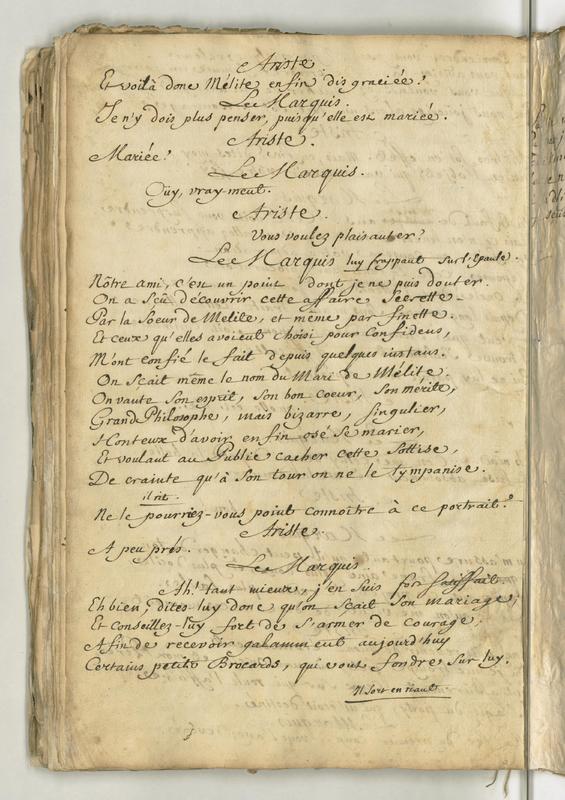 Ariste.
Et voilà donc Mélite enfin disgraciée?
Le Marquis.
Je n'y dois plus penser, puisqu'elle est mariée.
Ariste.
Mariée?
Le Marquis.
Oüy, vrayment.
Ariste.
Vous voulez plaisanter?
Le Marquis luy frappant sur l'Epaule.
Nôtre ami, c'est un point dont je ne puis douter.
On a sçû découvrir cette affaire secrette.
Par la Soeur de Mélite, et même par finette.
Et ceux qu'elles avoient choisi pour Confidens,
M'ont confié le fait depuis quelques instans.
On Scait même le nom du Mari de Mélite.
On vante Son esprit, Son bon coeur, Son mérite,
Grand Philosophe, mais bizarre, singulier,
Honteux d'avoir enfin osé Se marier,
Et voulant au Public cacher cette Sottise,
De crainte qu'à Son tour on ne le tympanise.
il rit.
Ne le pourriez-vous point connoître à ce portrait?
Ariste.
A peu prés.
Le Marquis.
Ah! tant mieux, j'en Suis fort Satisfait
Eh bien, dites luy donc qu'on Scait Son mariage;
Et conseillez-luy fort de S'armer de Courage,
Afin de recevoir galamment aujourd'huy
Certains petits Brocards, qui vont fondre Sur luy.
Il Sort en riant.